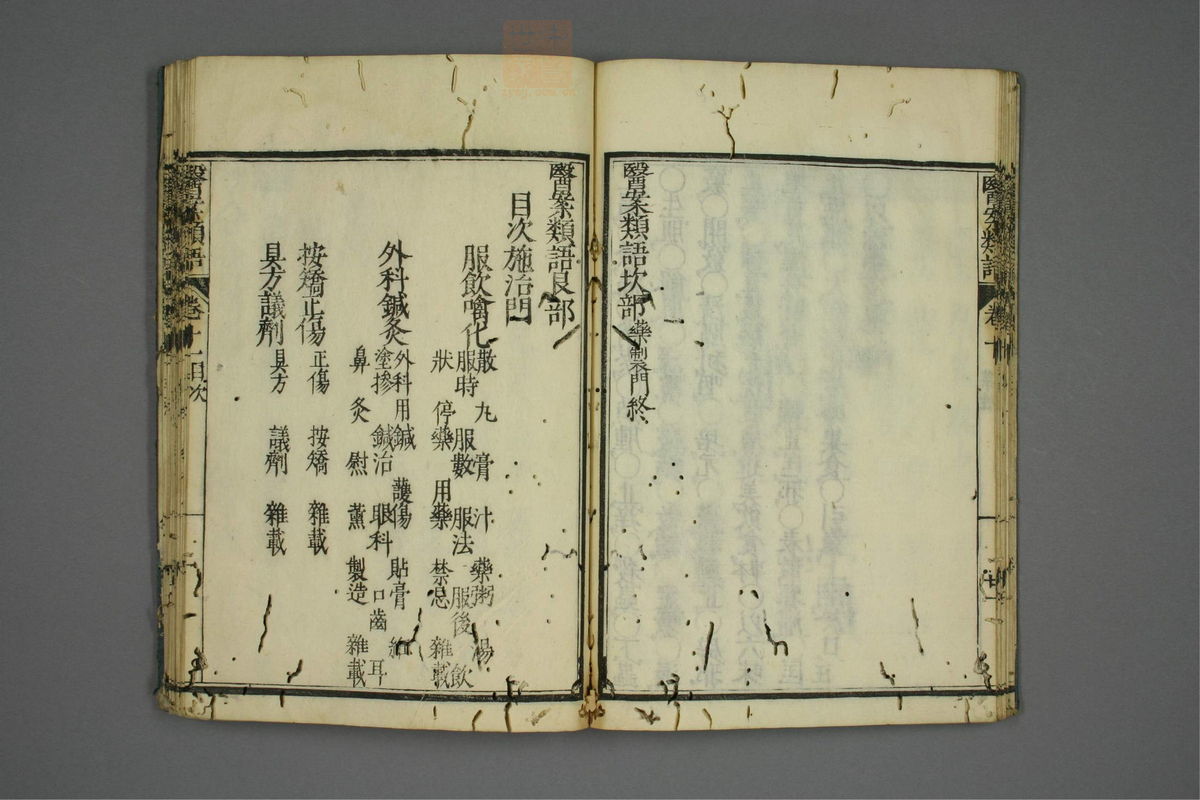 醫案類語 卷十
醫案類語坎部 藥製門終
醫案類語艮部
目次施治門
服飲噙化
散 丸 膏 汁 藥粥 湯
服時 服數 服法 服後 飲
狀 停藥 用藥 禁忌 雜載
外科鍼灸
外科 用鍼 護傷 貼膏
塗摻 鍼治 眼科 口齒 耳
鼻 灸 慰 薰 製造 雜載
按矯正傷
正傷 按矯 雜載
具方議劑
具方 議劑 雜載
醫案類語 卷十一目次